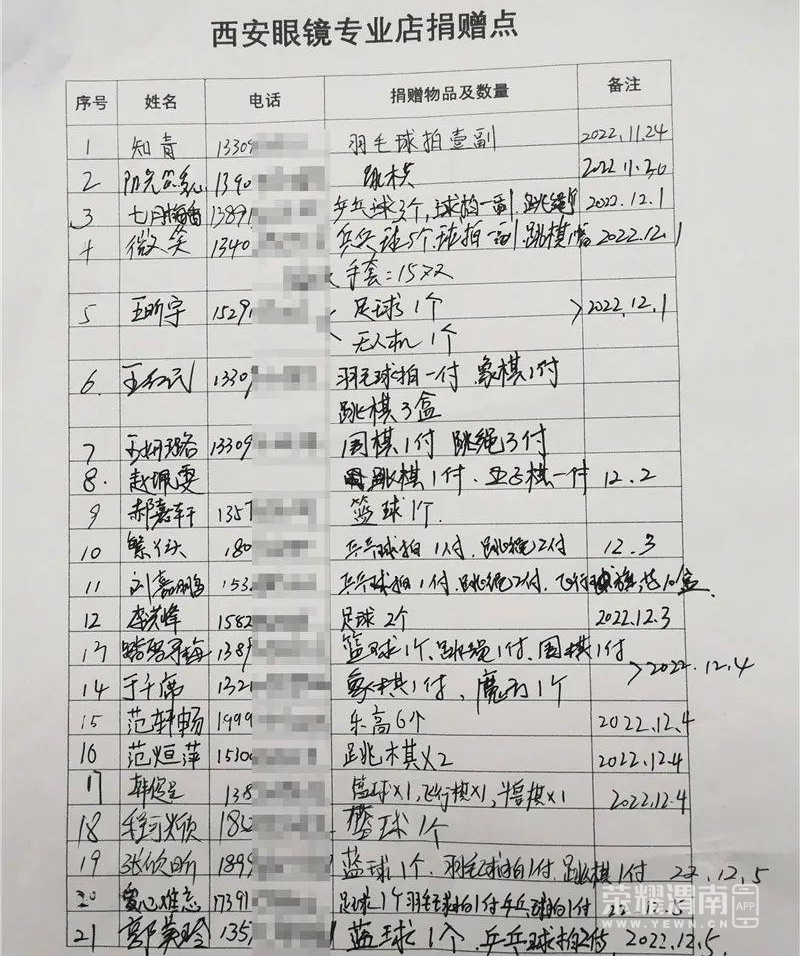 西安眼镜专业店捐赠点
序号 姓名 电话 捐赠物品及数量 备注
1 知青 13309 羽毛球拍壹副 2022.11.24
2 1390 跳棋 2022.11.30
3 七月 13891 乒乓球3个,球拍一副,跳绳 2022.12.1
4 微笑 1340 乒乓球5个,球拍一副,跳棋1 2022.12.1
手套:15双
5 王昕宇 1529 足球1个 2022.12.1
无人机1个
6. 王 13309 羽毛球拍一付.象棋1付
跳棋3盒
7 王妍璐 13309 围棋1付 跳绳3付
8. 赵珮雯 跳棋1付.五子棋一付 12.2
9 郝嘉轩 1357 篮球1个.
10 180 乒乓球拍1付.跳绳2付 12.3
11 刘嘉鹏 153 乒乓球拍1付.跳绳2付.飞行棋
12 李 峰 1582 足球2个 2022.12.3
13 1389 篮球1个、跳绳1付、围棋1付
2022.12.4
14 于千 1321 象棋1付、魔方1个
15 范轩畅 1999 乐高6个 2022.12.4
16 范烜萍 1530 跳棋×2 2022.12.4
17 韩 138 篮球×1,飞行棋×1,军棋×1 2022.12.4
18 程 18 篮球1个
19 张欣昕 1899 篮球1个.羽毛球拍1付.跳棋1付 22.12.5
20 爱心难忘 17391 足球1个羽毛球拍1付乒乓球拍1付 22.12.5
21 郭 玲 135 篮球1个.乒乓球拍2付. 2022.12.5.
荣耀渭南 APP
WWW.YEWN.CN